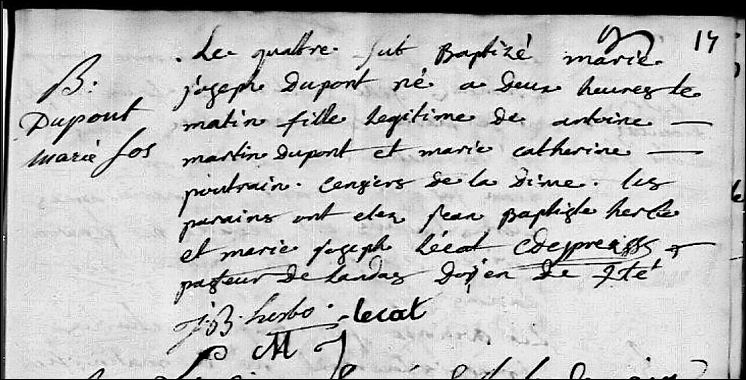 14
B.
Dupont
marie Jos
Le quattre fut Baptizé marie
joseph Dupont né a deux heures le
matin fille legitime de antoine —
martin dupont et marie catherine —
poutrain. Censiers de la dime. les
parains ont etez jean Baptiste herbo
et marie joseph Lécat
pasteur de Landas Doÿen de
J:B: herbo. lecat
M